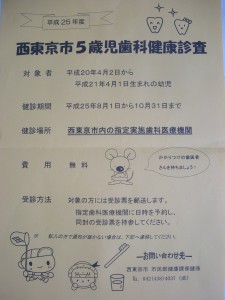 平成25年度
西東京市5歳児歯科健康診査
対象者 平成20年4月2日から
平成21年4月1日生まれの幼児
健診期間 平成25年8月1日から10月31日まで
健診場所 西東京市内の指定実施歯科医療機関
費用 無料
かかりつけの歯医者
さんを持ちましょう!
受診方法 対象の方には受診票を郵送します。
指定歯科医療機関に日時を予約し、
同封の受診票を持参してください。
お問い合わせ先
西東京市 市民部健康課保健係